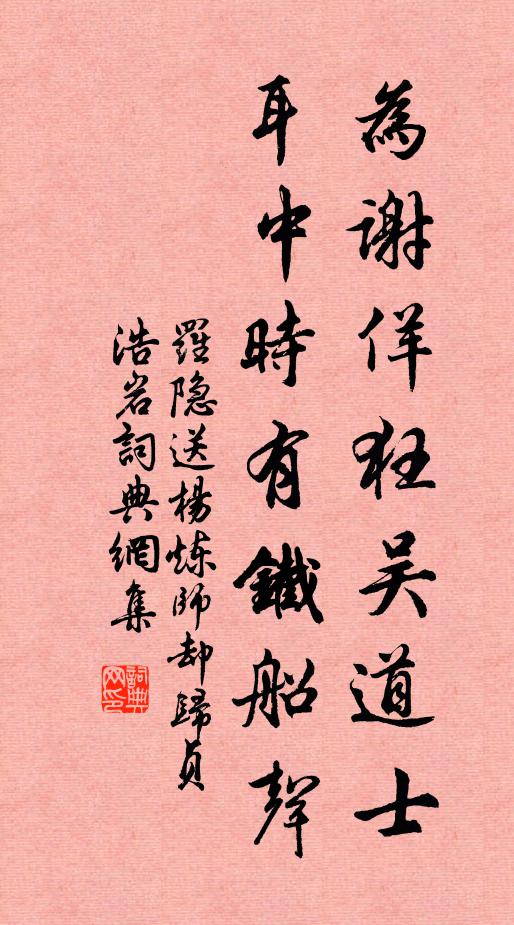 為謝佯狂吳道士
耳中時有鐵船聲
羅隐送楊炼師却歸貞
浩岩詞典網集
詞典网印